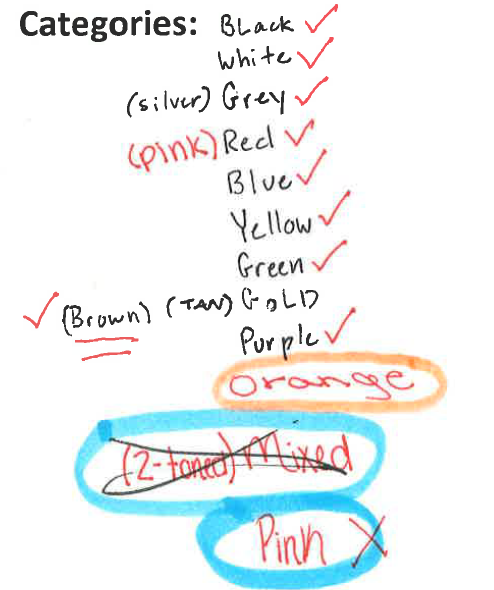 Categories: BLack
White
(silver) Grey
(pink) Red
Blue
Yellow
Green
(Brown) (TAN) GOLD
Purple
orange
(2-toned) Mixed
Pink X